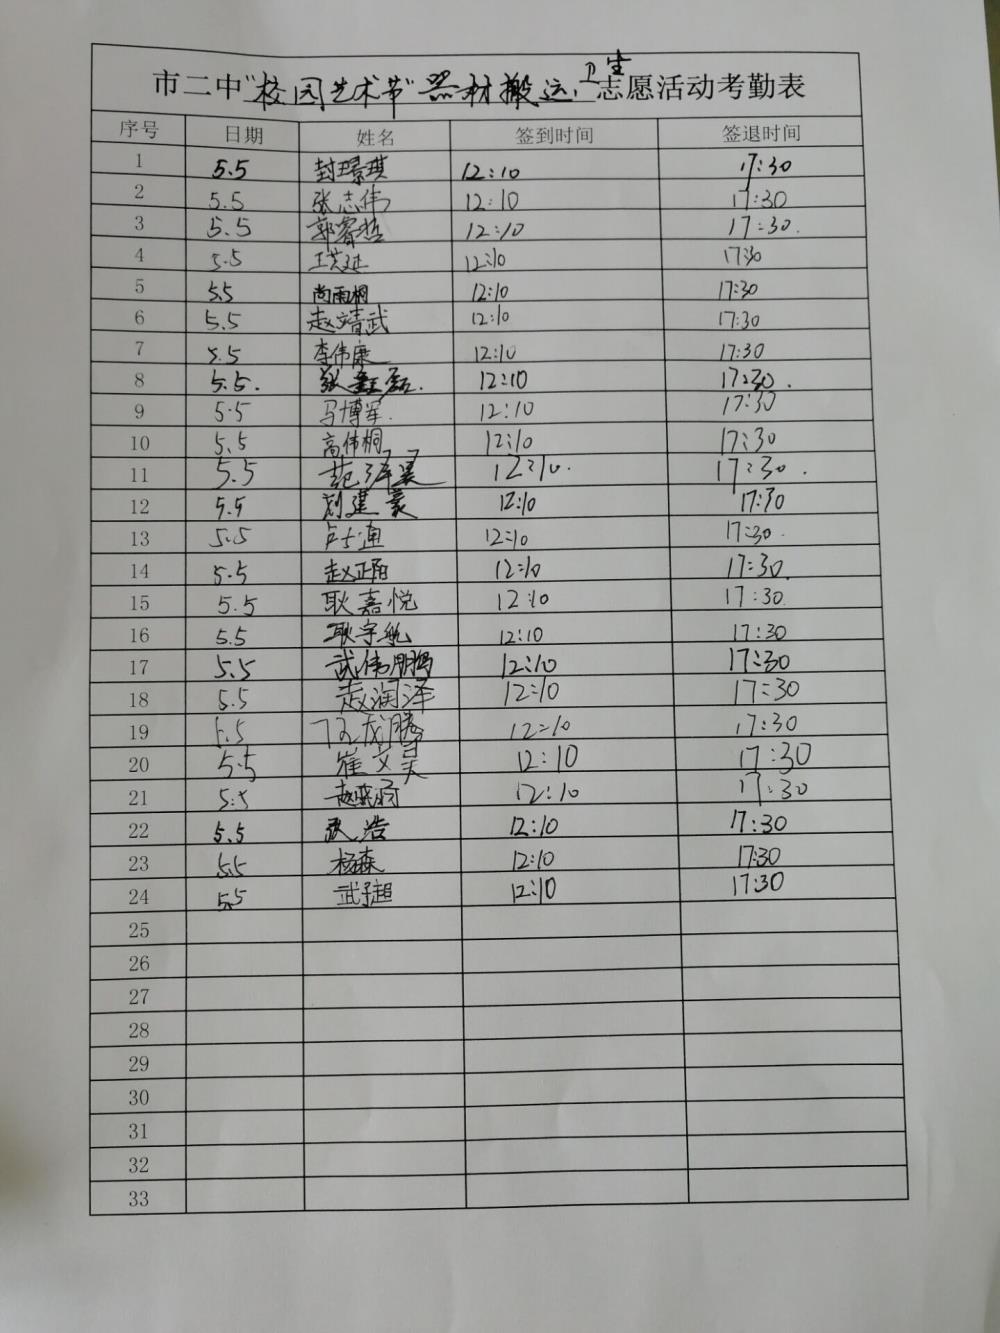 市二中“校园艺术节”器材搬运、卫生志愿活动考勤表
序号 日期 姓名 签到时间 签退时间
1 5.5 封璟琪 12:10 17:30
2 5.5 张志伟 12:10 17:30
3 5.5 郭睿哲 12:10 17:30
4 5.5 12:10 17:30
5 5.5 尚雨桐 12:10 17:30
6 5.5 赵靖武 12:10 17:30
7 5.5 李伟康 12:10 17:30
8 5.5. 张鑫磊. 12:10 17:30.
9 5.5 马博军. 12:10 17:30
10 5.5 高伟桐 12:10 17:30
11 5.5 范泽昊 12:10. 17:30.
12 5.5 刘建豪 12:10 17:30
13 5.5 卢士通 12:10 17:30.
14 5.5 赵正阳 12:10 17:30.
15 5.5 耿嘉悦 12:10 17:30.
16 5.5 耿宇航 12:10 17:30
17 5.5 武伟鹏 12:10 17:30
18 5.5 赵润泽 12:10 17:30
19 5.5 12:10 17:30
20 5.5 崔文昊 12:10 17:30
21 5.5 12:10 17:30
22 5.5 武浩 12:10 17:30
23 5.5 杨森 12:10 17:30
24 5.5 武子超 12:10 17:30
25
26
27
28
29
30
31
32
33